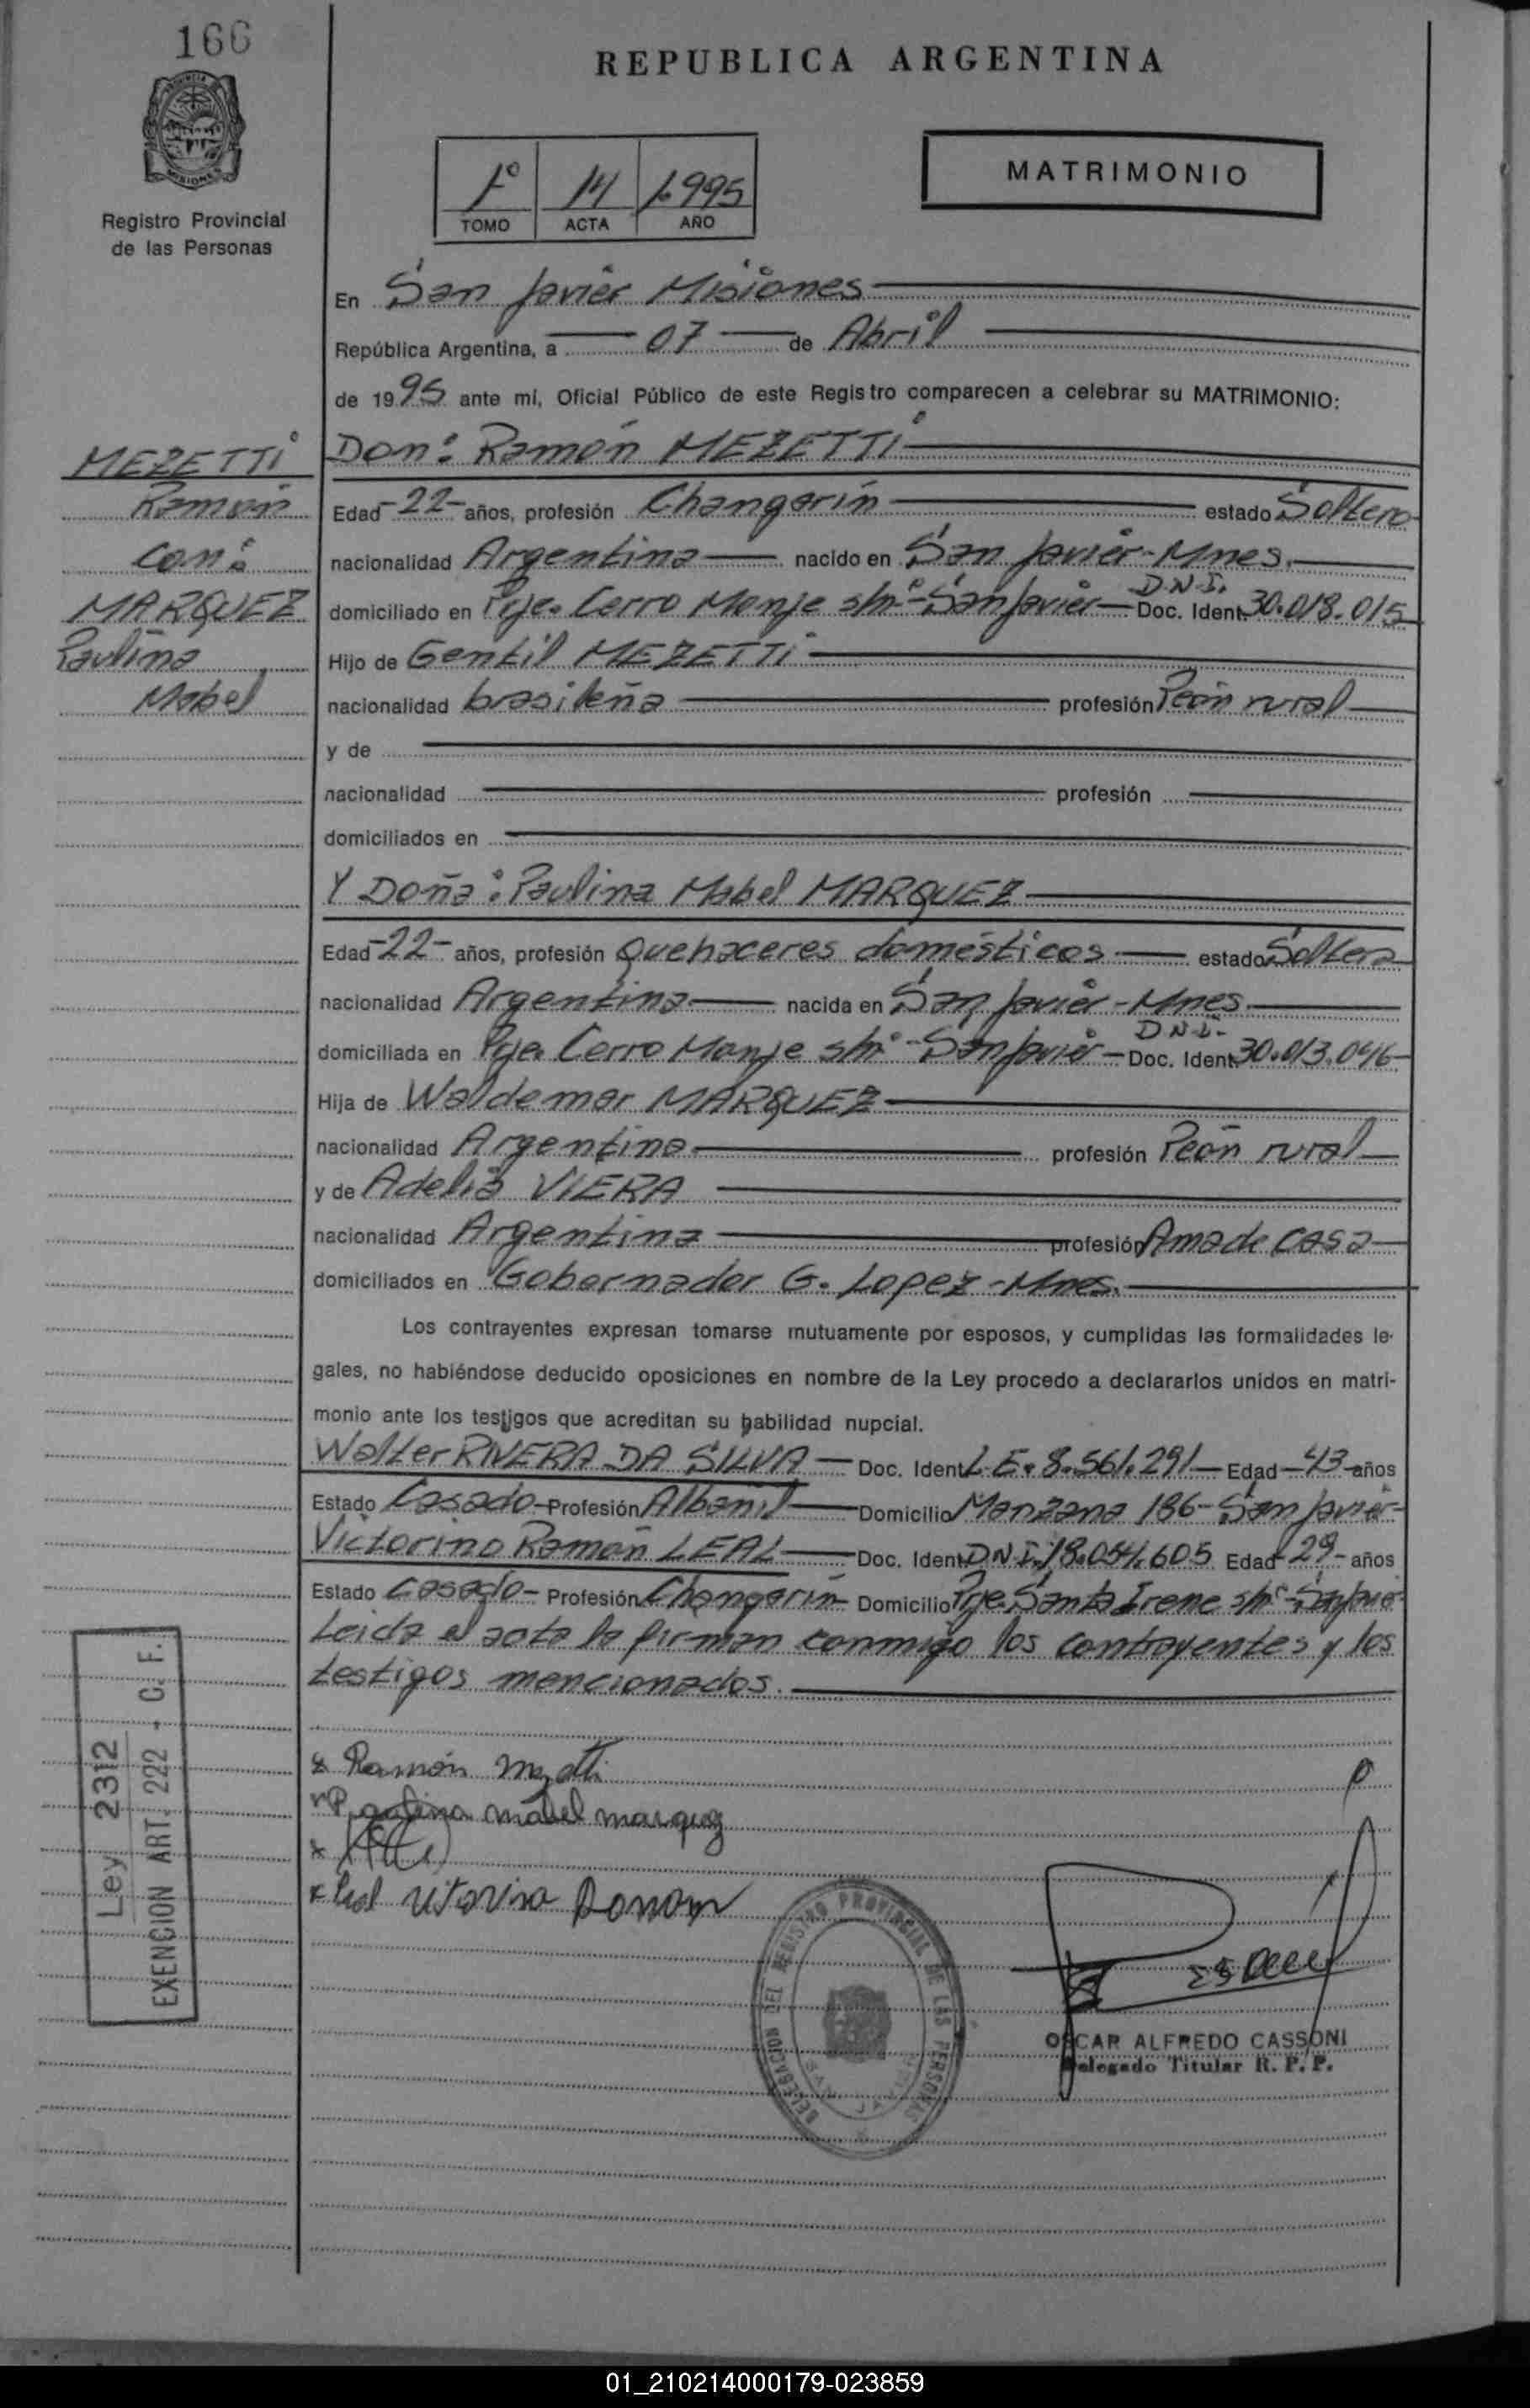 166
REPUBLICA ARGENTINA
PROVINCIA
MISIONES
Registro Provincial
de las Personas
1º 14 1.995
TOMO ACTA AÑO
MATRIMONIO
En San Javier Misiones
República Argentina, a 07 de Abril
de 1995 ante mí, Oficial Público de este Registro comparecen a celebrar su MATRIMONIO:
MEZETTI
Ramón
con:
MARQUEZ
Paulina
Mabel
Don: Ramón MEZETTI
Edad -22- años, profesión Changarín estado Soltero
nacionalidad Argentina nacido en San Javier-Mnes.
D.N.I.
domiciliado en Pje. Cerro Monje s/nº-San Javier- Doc. Ident. 30.018.015
Hijo de Gentil MEZETTI
nacionalidad brasileña profesión Peón rural
y de
nacionalidad profesión
domiciliados en
Y Doña: Paulina Mabel MARQUEZ
Edad -22- años, profesión Quehaceres domésticos estado Soltera
nacionalidad Argentina nacida en San Javier-Mnes
D.N.I.
domiciliada en Pje. Cerro Monje s/nº-San Javier- Doc. Ident. 30.013.046
Hija de Waldemar MARQUEZ
nacionalidad Argentina profesión Peón rural
y de Adelia VIERA
nacionalidad Argentina profesión Ama de casa
domiciliados en Gobernador G. Lopez-Mnes.
Los contrayentes expresan tomarse mutuamente por esposos, y cumplidas las formalidades le-
gales, no habiéndose deducido oposiciones en nombre de la Ley procedo a declararlos unidos en matri-
monio ante los testigos que acreditan su habilidad nupcial.
Walter RIVERA DA SILVA Doc. Ident. L.E. 8.561.291 Edad -43- años
Estado Casado- Profesión Albañil Domicilio Manzana 186-San Javier-
Victorino Ramón LEAL Doc. Ident. D.N.I. 18.054.605 Edad -29- años
Estado Casado- Profesión Changarín Domicilio Pje. Santa Irene s/nº-San Javier
Leida el acta la firman conmigo los contrayentes y los
testigos mencionados.
Ley 2312
EXENCION ART. 222 - C. F.
x Ramón Mezetti
Paulina mabel marquez
x Leal Vitorino Ramon
DELEGACION DEL REGISTRO PROVINCIAL DE LAS PERSONAS
OSCAR ALFREDO CASSONI
Delegado Titular R. P. P.
01_210214000179-023859